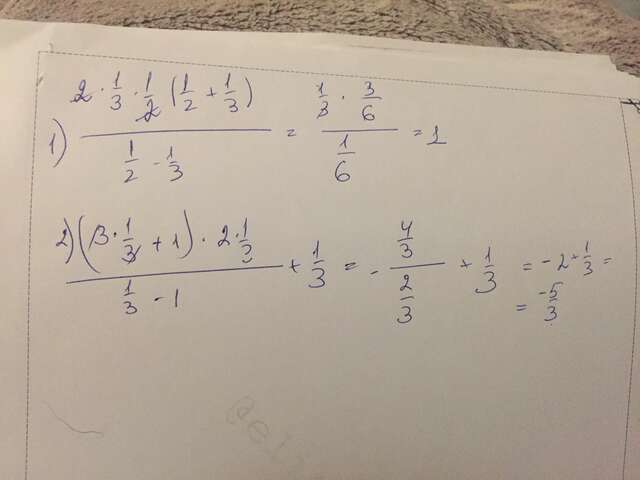 1) (2 · 1/3 · 1/2 (1/2 + 1/3)) / (1/2 - 1/3) = (1/3 · 3/6) / (1/6) = 1
2) ((3 · 1/3 + 1) · 2 · 1/3) / (1/3 - 1) + 1/3 = - (4/3) / (2/3) + 1/3 = -2 + 1/3 =
= -5/3